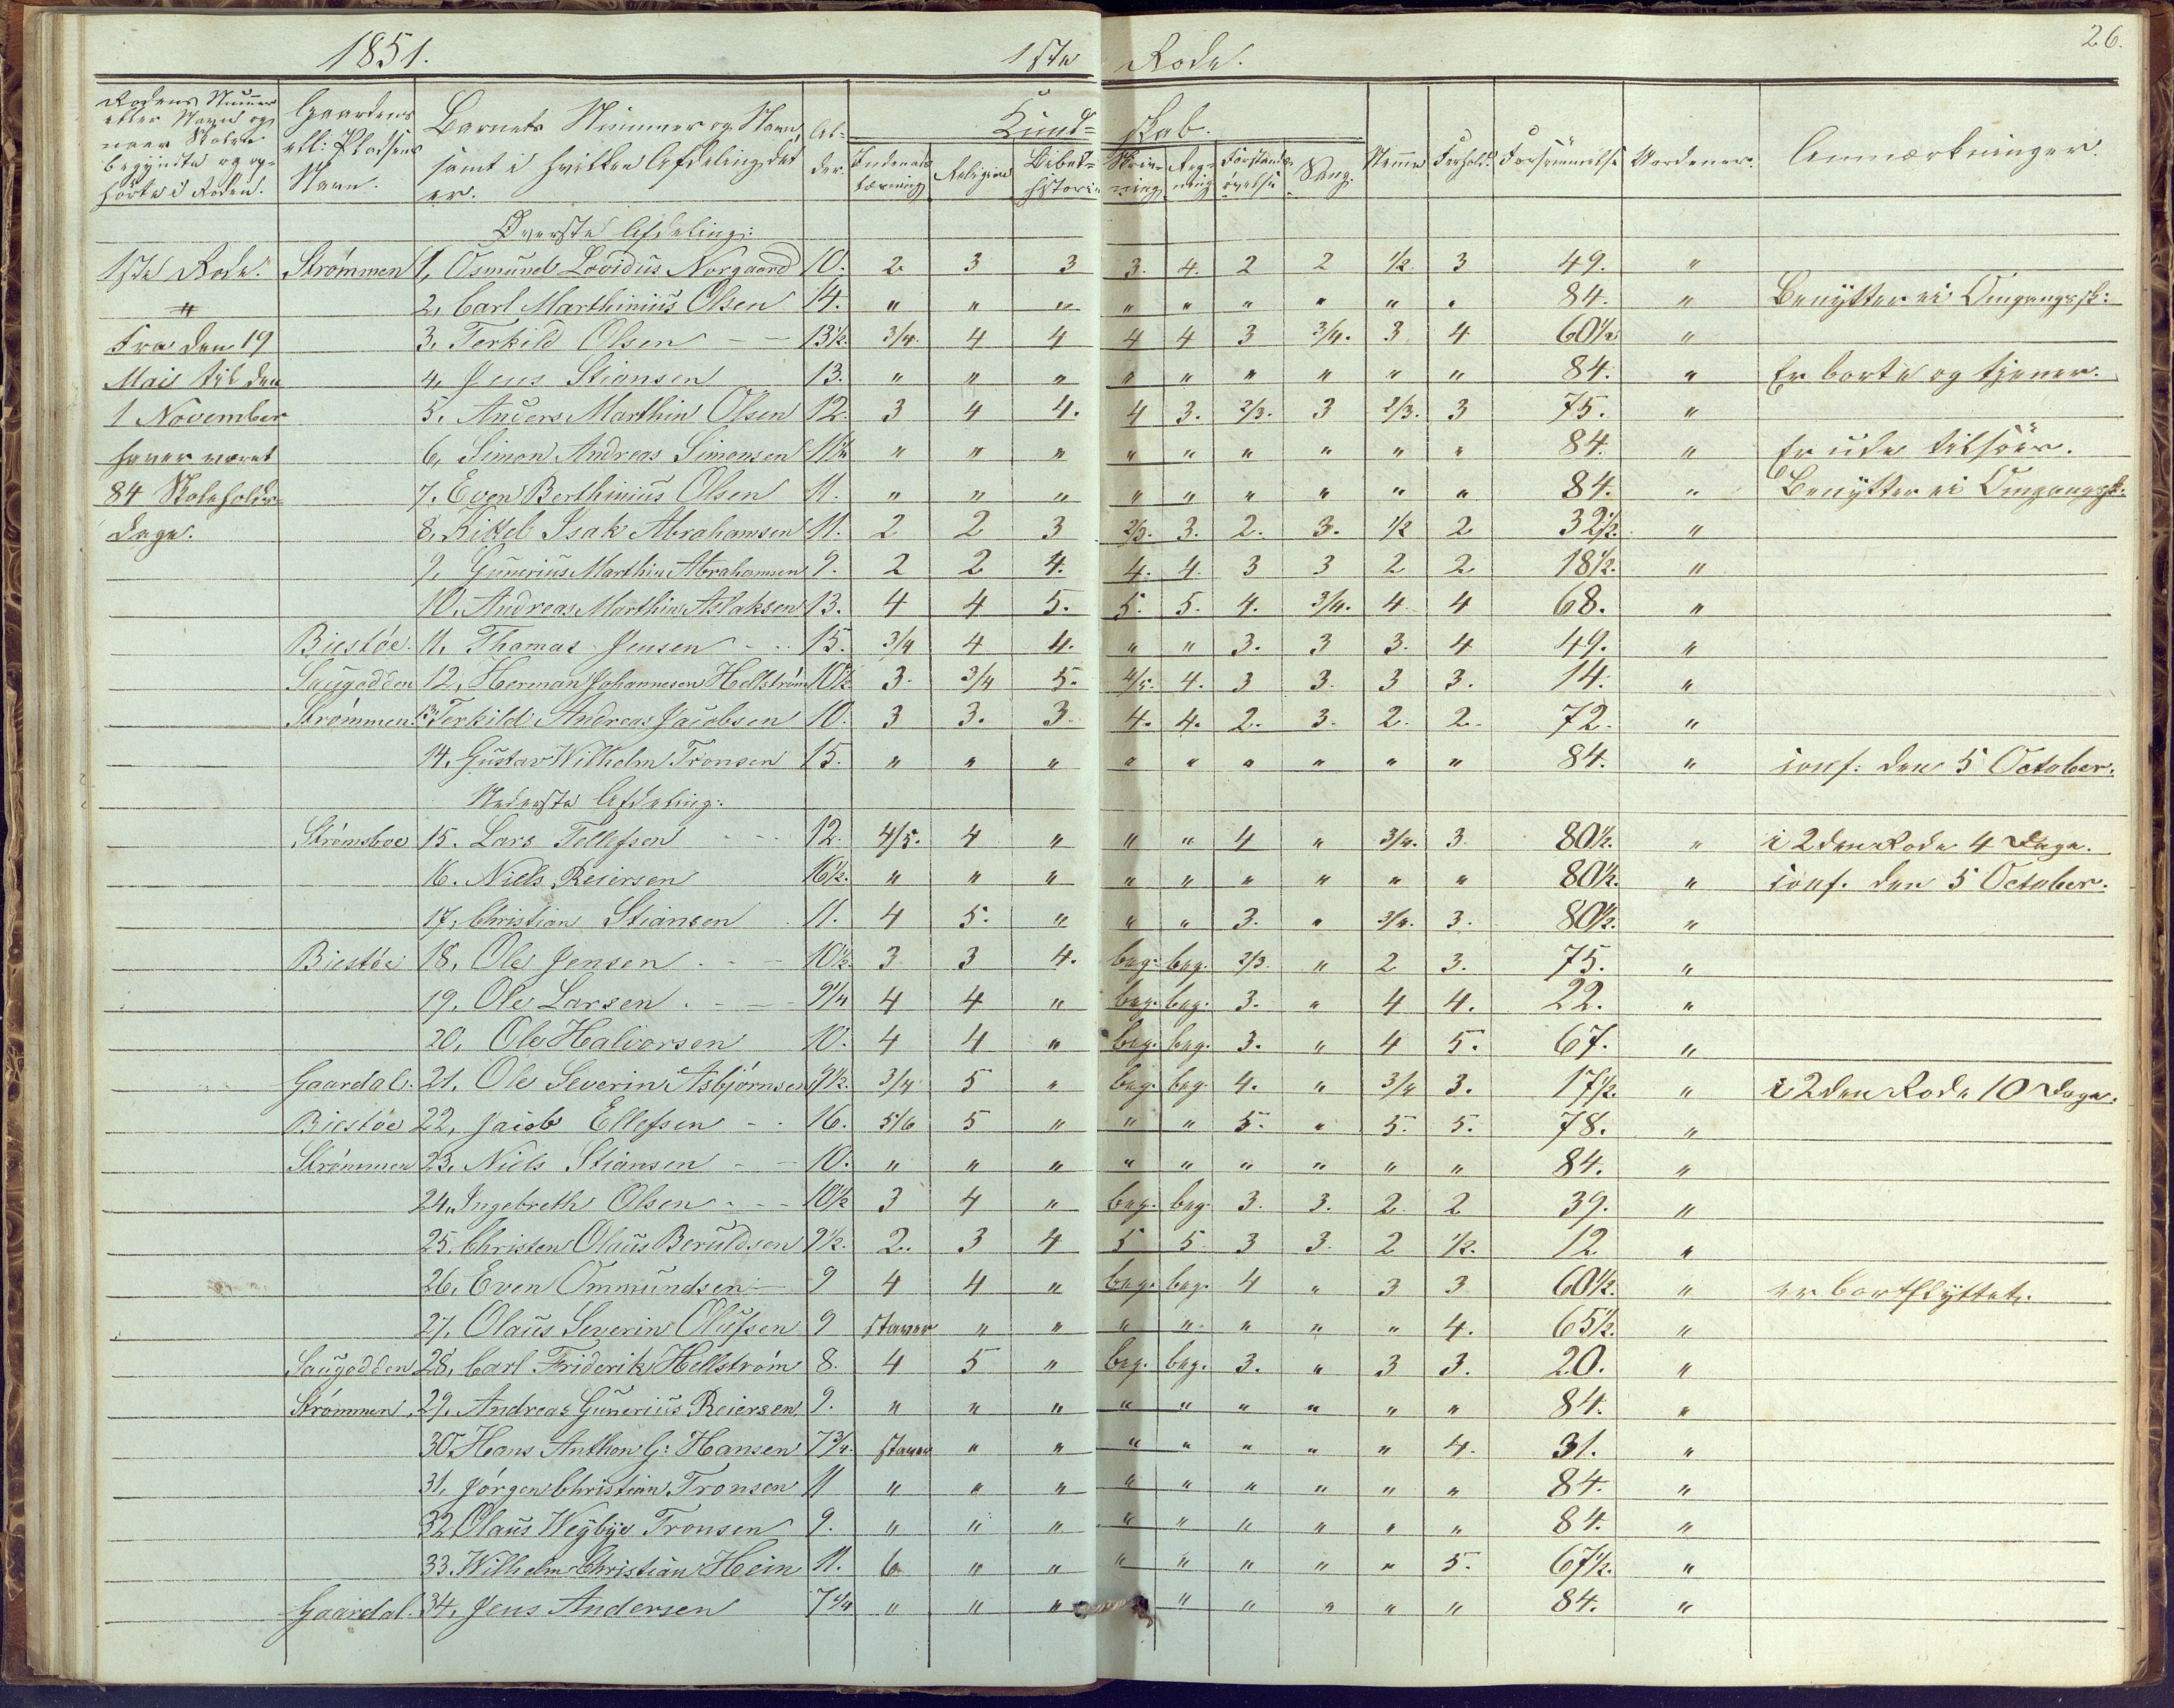 1851. 1ste Rode. 26.
Rodens Nummer eller Navn og naar Skolen begyndte og ophørte i Roden. Gaardens ell: Pladsens Navn. Barnets Nummer og Navn, samt i hvilken Afdeling det er. Al-der. Kund= skab. Indenads læsning Religion Bibel= historie Skriv= ning Reg= ning Forstands øvelse Sang. Nemme Forhold. Forsømmelse Anmærkninger.
Øverste Afdeling:
1ste Rode. Strømmen 1, Osmund Lovidus Norgaard 10. 2 3 3 3. 4. 2 2 1/2 3 49. "
2, Carl Marthinius Olsen 14. " " " " " " " " " 84. " Benytter ei Omgangssk:
Fra den 19 3, Terkild Olsen 13 1/2. 3/4. 4 4 4 4 3 3/4. 3 4 60 1/2 "
Mai til den 4, Jens Stiansen 13. " " " " " " " " " 84. " Er borte og tjener.
1 November 5, Anders Marthin Olsen 12. 3 4 4. 4 3. 2/3. 3 2/3. 3 75. "
haver været 6, Simon Andreas Simonsen 11 1/2 " " " " " " " " " 84. " Er ude tilsøes.
84 Skoleholds= 7. Even Berthinius Olsen 11. " " " " " " " " " 84. " Benytter ei Omgangssk.
dage. 8, Kittel Isak Abrahamsen 11. 2 2 3 2/3. 3. 2. 3. 1/2 2 32 1/2. "
9, Gunerius Marthin Abrahamsen 9. 2 2 4. 4. 4 3 3 2 2 18 1/2. "
10. Andreas Marthin Aslaksen 13. 4 4 5. 5. 5. 4. 3/4. 4 4 68. "
Biestöe. 11. Thomas Jensen 15. 3/4 4 4. " " 3. 3 3. 4 49. "
Saugodden 12, Herman Johannesen Hellström 10 1/2 3. 3/4 5. 4/5. 4. 3 3. 3 3. 14. "
Strømmen. 13. Terkild Andreas Jacobsen 10. 3 3. 3. 4. 4. 2. 3. 2. 2. 72. "
14, Gustav Wilhelm Tronsen 15. " " " " " " " " " 84. " conf: den 5 October.
Nederste Afdeling:
Strømsboe 15. Lars Tellefsen 12. 4/5. 4 " " " 4 " 3/4. 3 80 1/2. " i 2den Rode 4 Dage.
16. Niels Reiersen 16 1/2. " " " " " " " " " 80 1/2. " conf. den 5 October.
17, Christian Stiansen 11. 4 5. " " " 3. " 3/4. 3. 80 1/2. "
Biestöe 18, Ole Jensen 10 1/2. 3 3 4. beg. beg. 2/3. " 2 3. 75. "
19, Ole Larsen 9 1/4 4 4 " beg. beg. 3. " 4 4. 22. "
20, Ole Halvorsen 10. 4 4 " beg. beg. 3. " 4 5. 67. "
Gaardal. 21. Ole Severin Asbjørnsen 9 1/2. 3/4 5 " beg. beg. 4. " 3/4 3. 17 1/2. " i 2den Rode 10 Dage.
Biestöe 22, Jacob Ellefsen 16. 5/6 5 " " " 5. " 5. 5. 78. "
Strømmen 23, Niels Stiansen 10. " " " " " " " " " 84. "
24, Ingebreth Olsen 10 1/2 3 4 " beg. beg. 3. 3. 2. 2 39. "
25. Christen Olaus Beruldsen 9 1/2. 2. 3 4 5 5 3 3. 2 1/2. 12 "
26, Even Ommundsen 9 4 4 " beg. beg. 4 " 3 3 60 1/2. " er bortflyttet.
27, Olaus Severin Olufsen 9 staver " " " " " " " 4. 65 1/2. "
Saugodden 28, Carl Friderik Hellström 8. 4 5 " beg. beg. 3. " 3 3. 20. "
Strømmen, 29, Andreas Gunerius Reiersen 9. " " " " " " " " " 84. "
30. Hans Anthon G: Hansen 7 3/4. staver " " " " " " " 4. 31. "
31, Jørgen Christian Tronsen 11 " " " " " " " " " 84. "
32 Olaus Weybye Tronsen 9. " " " " " " " " " 84. "
33. Wilhelm Christian Hein 11. 6 " " " " " " " 5. 67 1/2. "
Gaardal. 34, Jens Andersen 7 1/4 " " " " " " " " 84. "